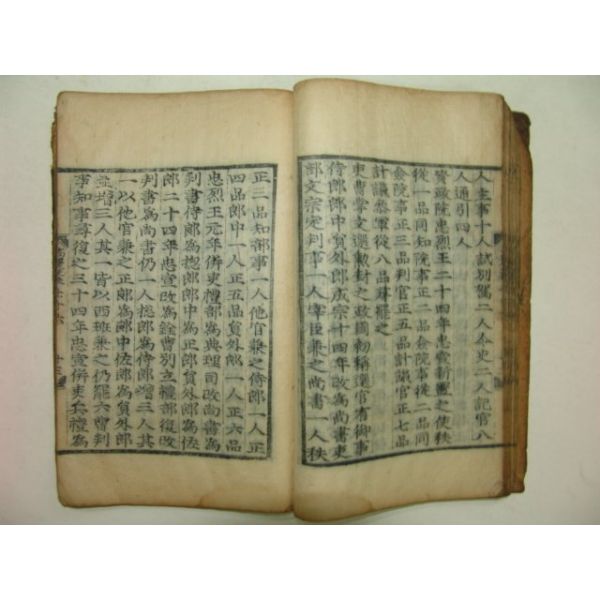 人主事十人試別駕二人令史二人記官八
人通引四人
資政院忠烈王二十四年忠宣新置之使秩
從一品同知院事正二品僉院事從二品同
僉院事正三品判官正五品計議官正七品
計議參軍從八品尋罷之
吏曹掌文選勳封之政國初稱選官有御事
侍郎郎中員外郎成宗十四年改爲尚書吏
部文宗定判事一人宰臣兼之尚書一人秩
正三品知部事一人他官兼之侍郎一人正
四品郎中一人正五品員外郎一人正六品
忠烈王元年併吏禮部爲典理司改尚書爲
判書侍郎爲摠郎郎中爲正郎員外郎爲佐
郎二十四年忠宣改爲銓曹別立禮部復改
判書爲尚書仍一人摠郎爲侍郎增三人其
一以他官兼之正郎爲郎中佐郎爲員外郎
並增三人其一皆以西班兼之仍罷六曹判
事知事尋復之三十四年忠宣併吏兵禮爲